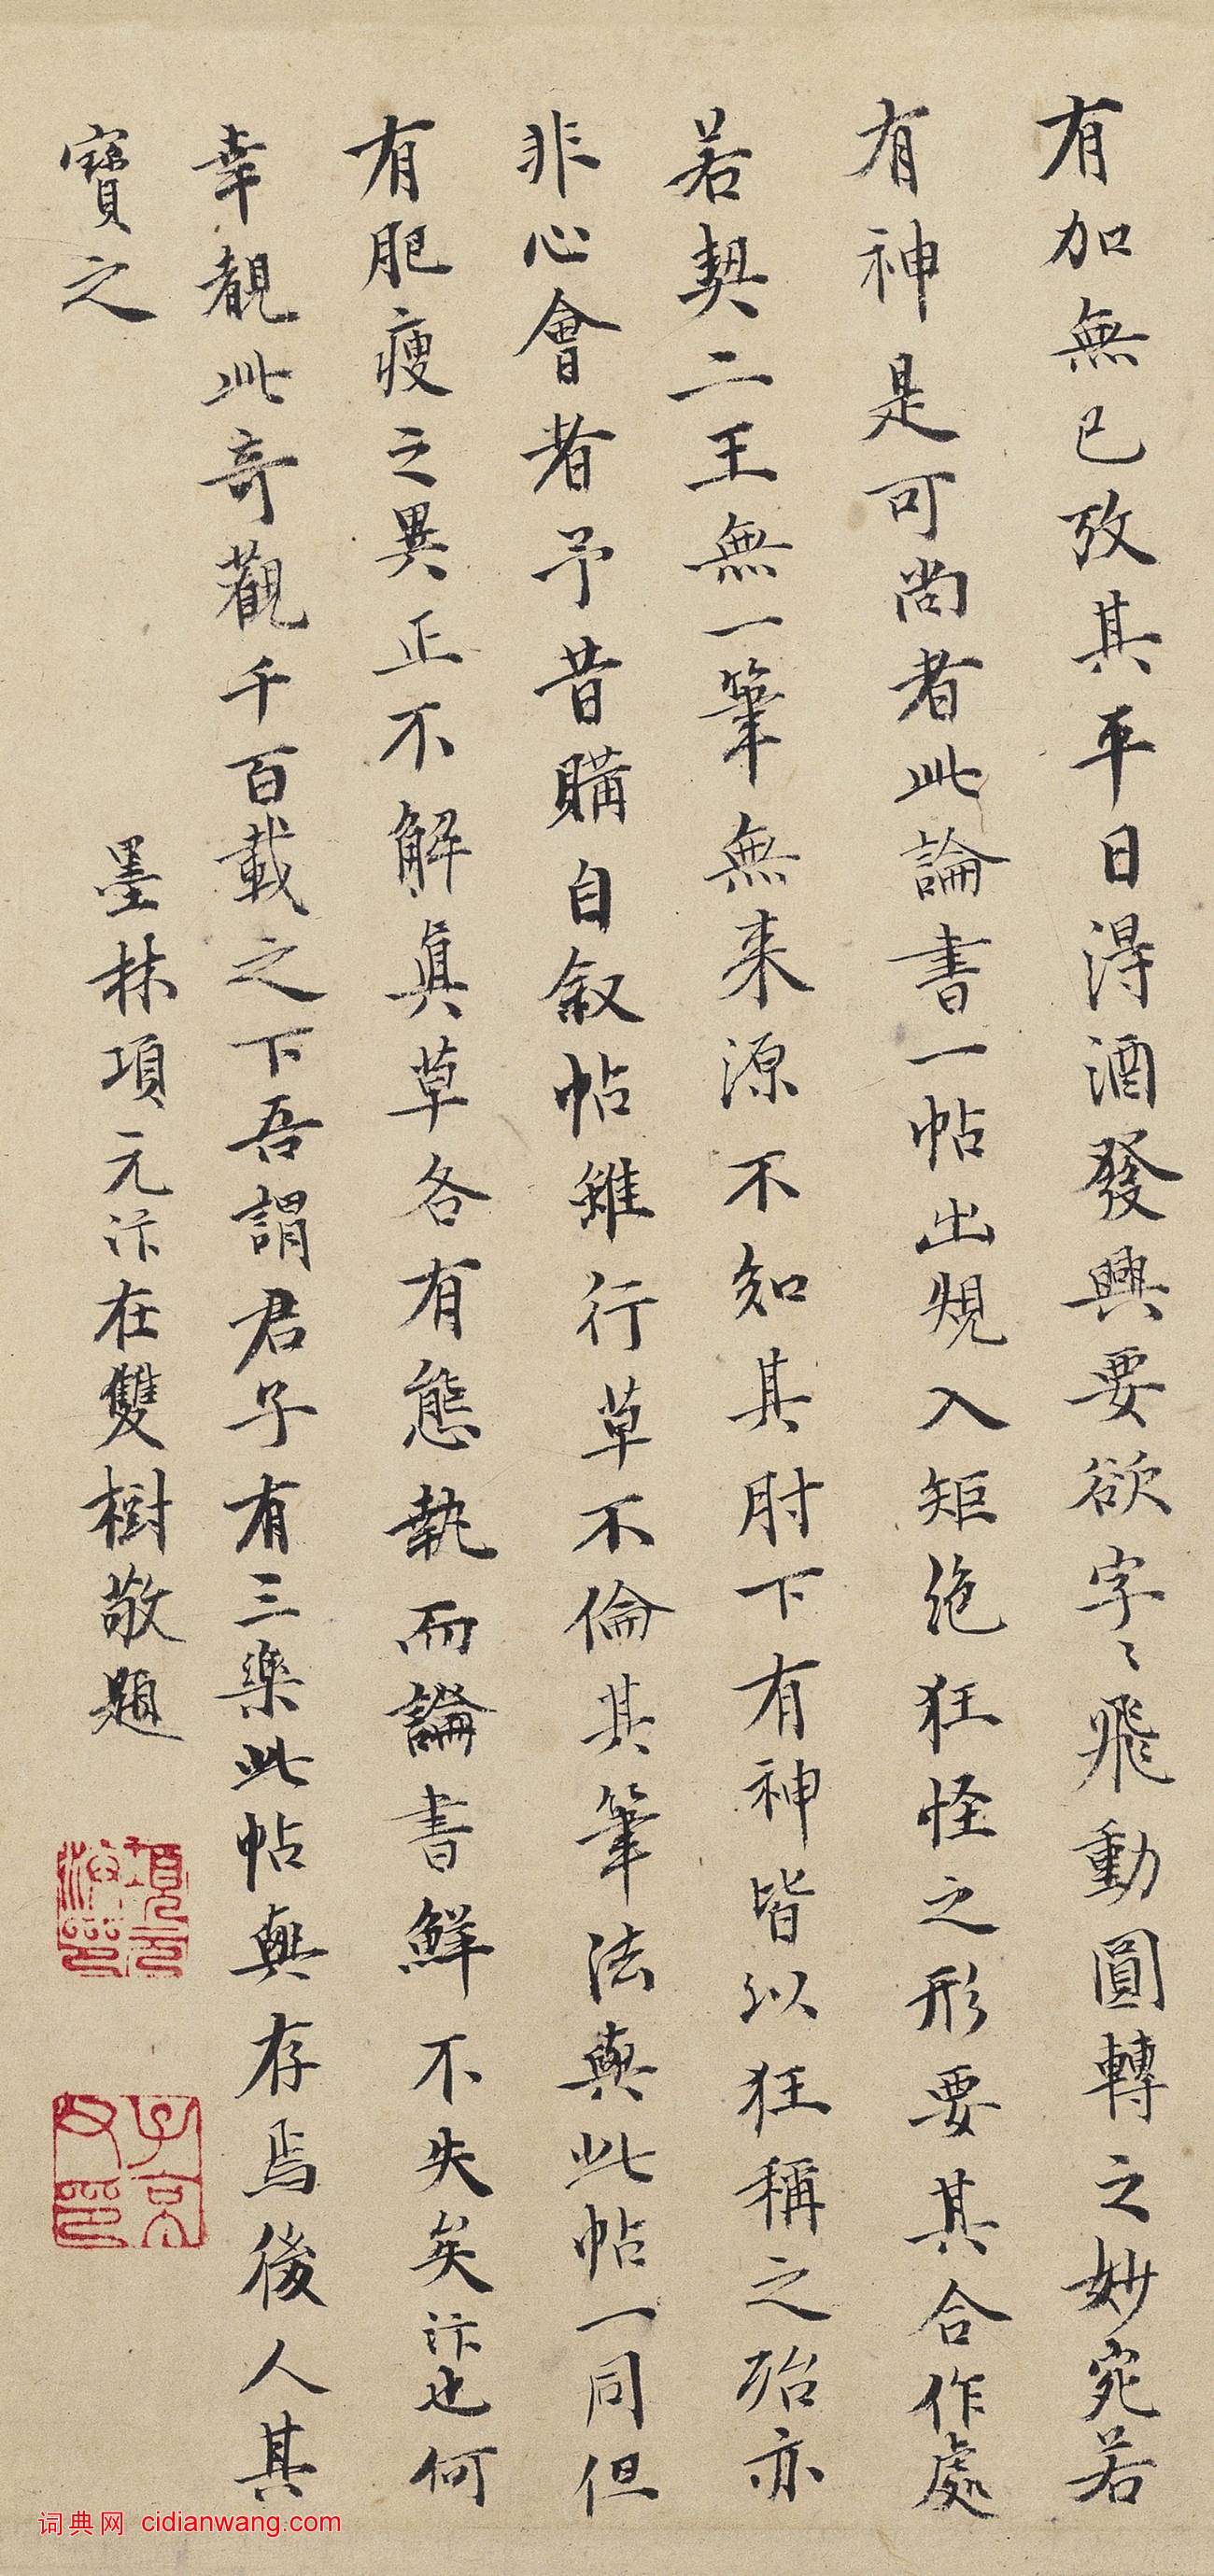 有加無已攷其平日得酒發興要欲字〻飛動圓轉之妙宛若
有神是可尚者此論書一帖出規入矩絶狂怪之形要其合作處
若契二王無一筆無来源不知其肘下有神皆以狂稱之殆亦
非心會者予昔購自叙帖雖行草不倫其筆法與此帖一同但
有肥瘦之異正不解真草各有態執而論書鮮不失矣汴也何
幸覩此奇觀千百載之下吾謂君子有三樂此帖與存焉後人其
寶之
墨林項元汴在雙樹敬題
項元汴印
子京父印
词典网 cidianwang.com